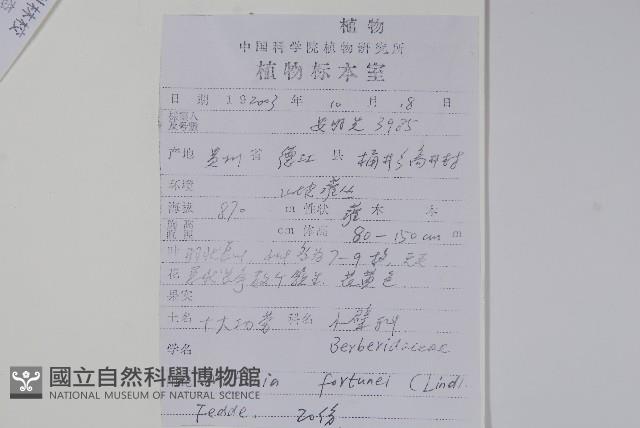 植物
中国科学院植物研究所
植物标本室
日期 19 2003 年 10 月 18 日
标本人及号数 安明先 3985
产地 贵州 省 德江 县 桶井乡高井村
环境 山坡灌丛
海拔 870 m 性状 灌木
胸高直径 cm 体高 80-150cm m
叶 羽状 7-9 枚
花 黄色
果实
土名 十大功劳 科名 小檗科
学名 Berberidaceae
fortunei (Lindl.
Fedde. 20份
國立自然科學博物館
NATIONAL MUSEUM OF NATURAL SCIENCE